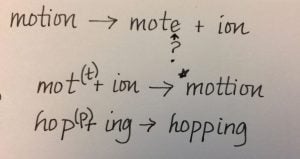 motion → mote + ion
?
mot(t) + ion → *mottion
hop(p) + ing → hopping